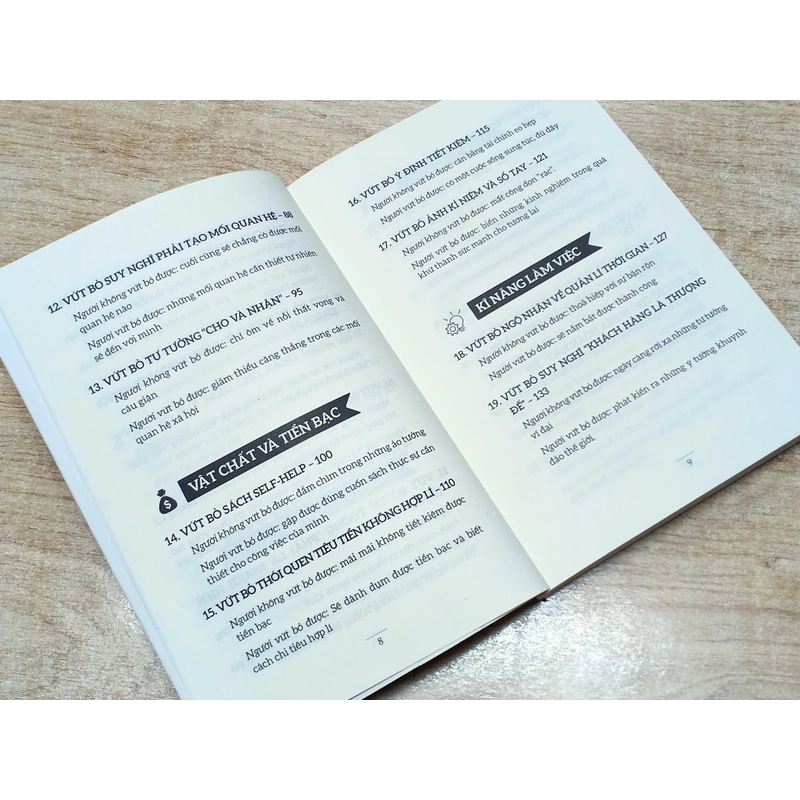 12. VỨT BỎ SUY NGHĨ PHẢI TẠO MỐI QUAN HỆ – 88
Người không vứt bỏ được: cuối cùng sẽ chẳng có được mối
quan hệ nào
Người vứt bỏ được: những mối quan hệ cần thiết tự nhiên
sẽ đến với mình
13. VỨT BỎ TƯ TƯỞNG "CHO VÀ NHẬN" – 95
Người không vứt bỏ được: chỉ ôm về nỗi thất vọng và
cáu giận
Người vứt bỏ được: giảm thiểu căng thẳng trong các mối
quan hệ xã hội
VẬT CHẤT VÀ TIỀN BẠC
14. VỨT BỎ SÁCH SELF-HELP – 100
Người không vứt bỏ được: đắm chìm trong những ảo tưởng
Người vứt bỏ được: gặp được đúng cuốn sách thực sự cần
thiết cho công việc của mình
15. VỨT BỎ THÓI QUEN TIÊU TIỀN KHÔNG HỢP LÍ – 110
Người không vứt bỏ được: mãi mãi không tiết kiệm được
tiền bạc
Người vứt bỏ được: Sẽ dành dụm được tiền bạc và biết
cách chi tiêu hợp lí
8
16. VỨT BỎ Ý ĐỊNH TIẾT KIỆM – 115
Người không vứt bỏ được: cán bằng tài chính eo hẹp
Người vứt bỏ được: có một cuộc sống sung túc, đủ đầy
17. VỨT BỎ ẢNH KỈ NIỆM VÀ SỔ TAY – 121
Người không vứt bỏ được: mất công dọn "rác".
Người vứt bỏ được: biến những kinh nghiệm trong quá
khứ thành sức mạnh cho tương lai
KĨ NĂNG LÀM VIỆC
18. VỨT BỎ NGỘ NHẬN VỀ QUẢN LÍ THỜI GIAN – 127
Người không vứt bỏ được: thoả hiệp với sự bận rộn
Người vứt bỏ được: sẽ nắm bắt được thành công
19. VỨT BỎ SUY NGHĨ "KHÁCH HÀNG LÀ THƯỢNG
ĐẾ" – 133
Người không vứt bỏ được: ngày càng rời xa những tư tưởng
vĩ đại
Người vứt bỏ được: phát kiến ra những ý tưởng khuynh
đảo thế giới.
9